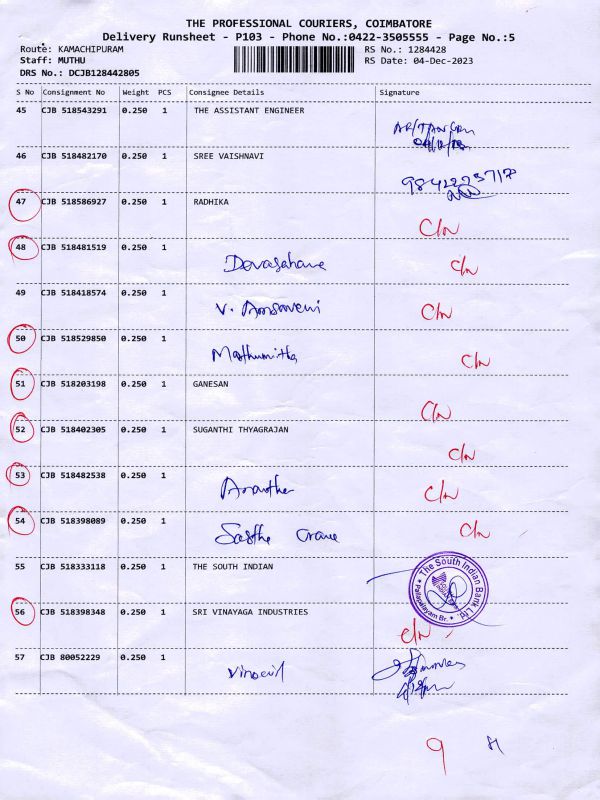 THE PROFESSIONAL COURIERS, COIMBATORE
Delivery Runsheet - P103 - Phone No.:0422-3505555 - Page No.:5
Route: KAMACHIPURAM RS No.: 1284428
Staff: MUTHU RS Date: 04-Dec-2023
DRS No.: DCJB128442805
S No Consignment No Weight PCS Consignee Details Signature
45 CJB 518543291 0.250 1 THE ASSISTANT ENGINEER
46 CJB 518482170 0.250 1 SREE VAISHNAVI
47 CJB 518586927 0.250 1 RADHIKA C/N
48 CJB 518481519 0.250 1 Devasahane C/N
49 CJB 518418574 0.250 1 V. C/N
50 CJB 518529850 0.250 1 Mathumitha C/N
51 CJB 518203198 0.250 1 GANESAN C/N
52 CJB 518402305 0.250 1 SUGANTHI THYAGRAJAN C/N
53 CJB 518482538 0.250 1 C/N
54 CJB 518398089 0.250 1 C/N
55 CJB 518333118 0.250 1 THE SOUTH INDIAN The South Indian Bank Ltd.
56 CJB 518398348 0.250 1 SRI VINAYAGA INDUSTRIES C/N
57 CJB 80052229 0.250 1
9